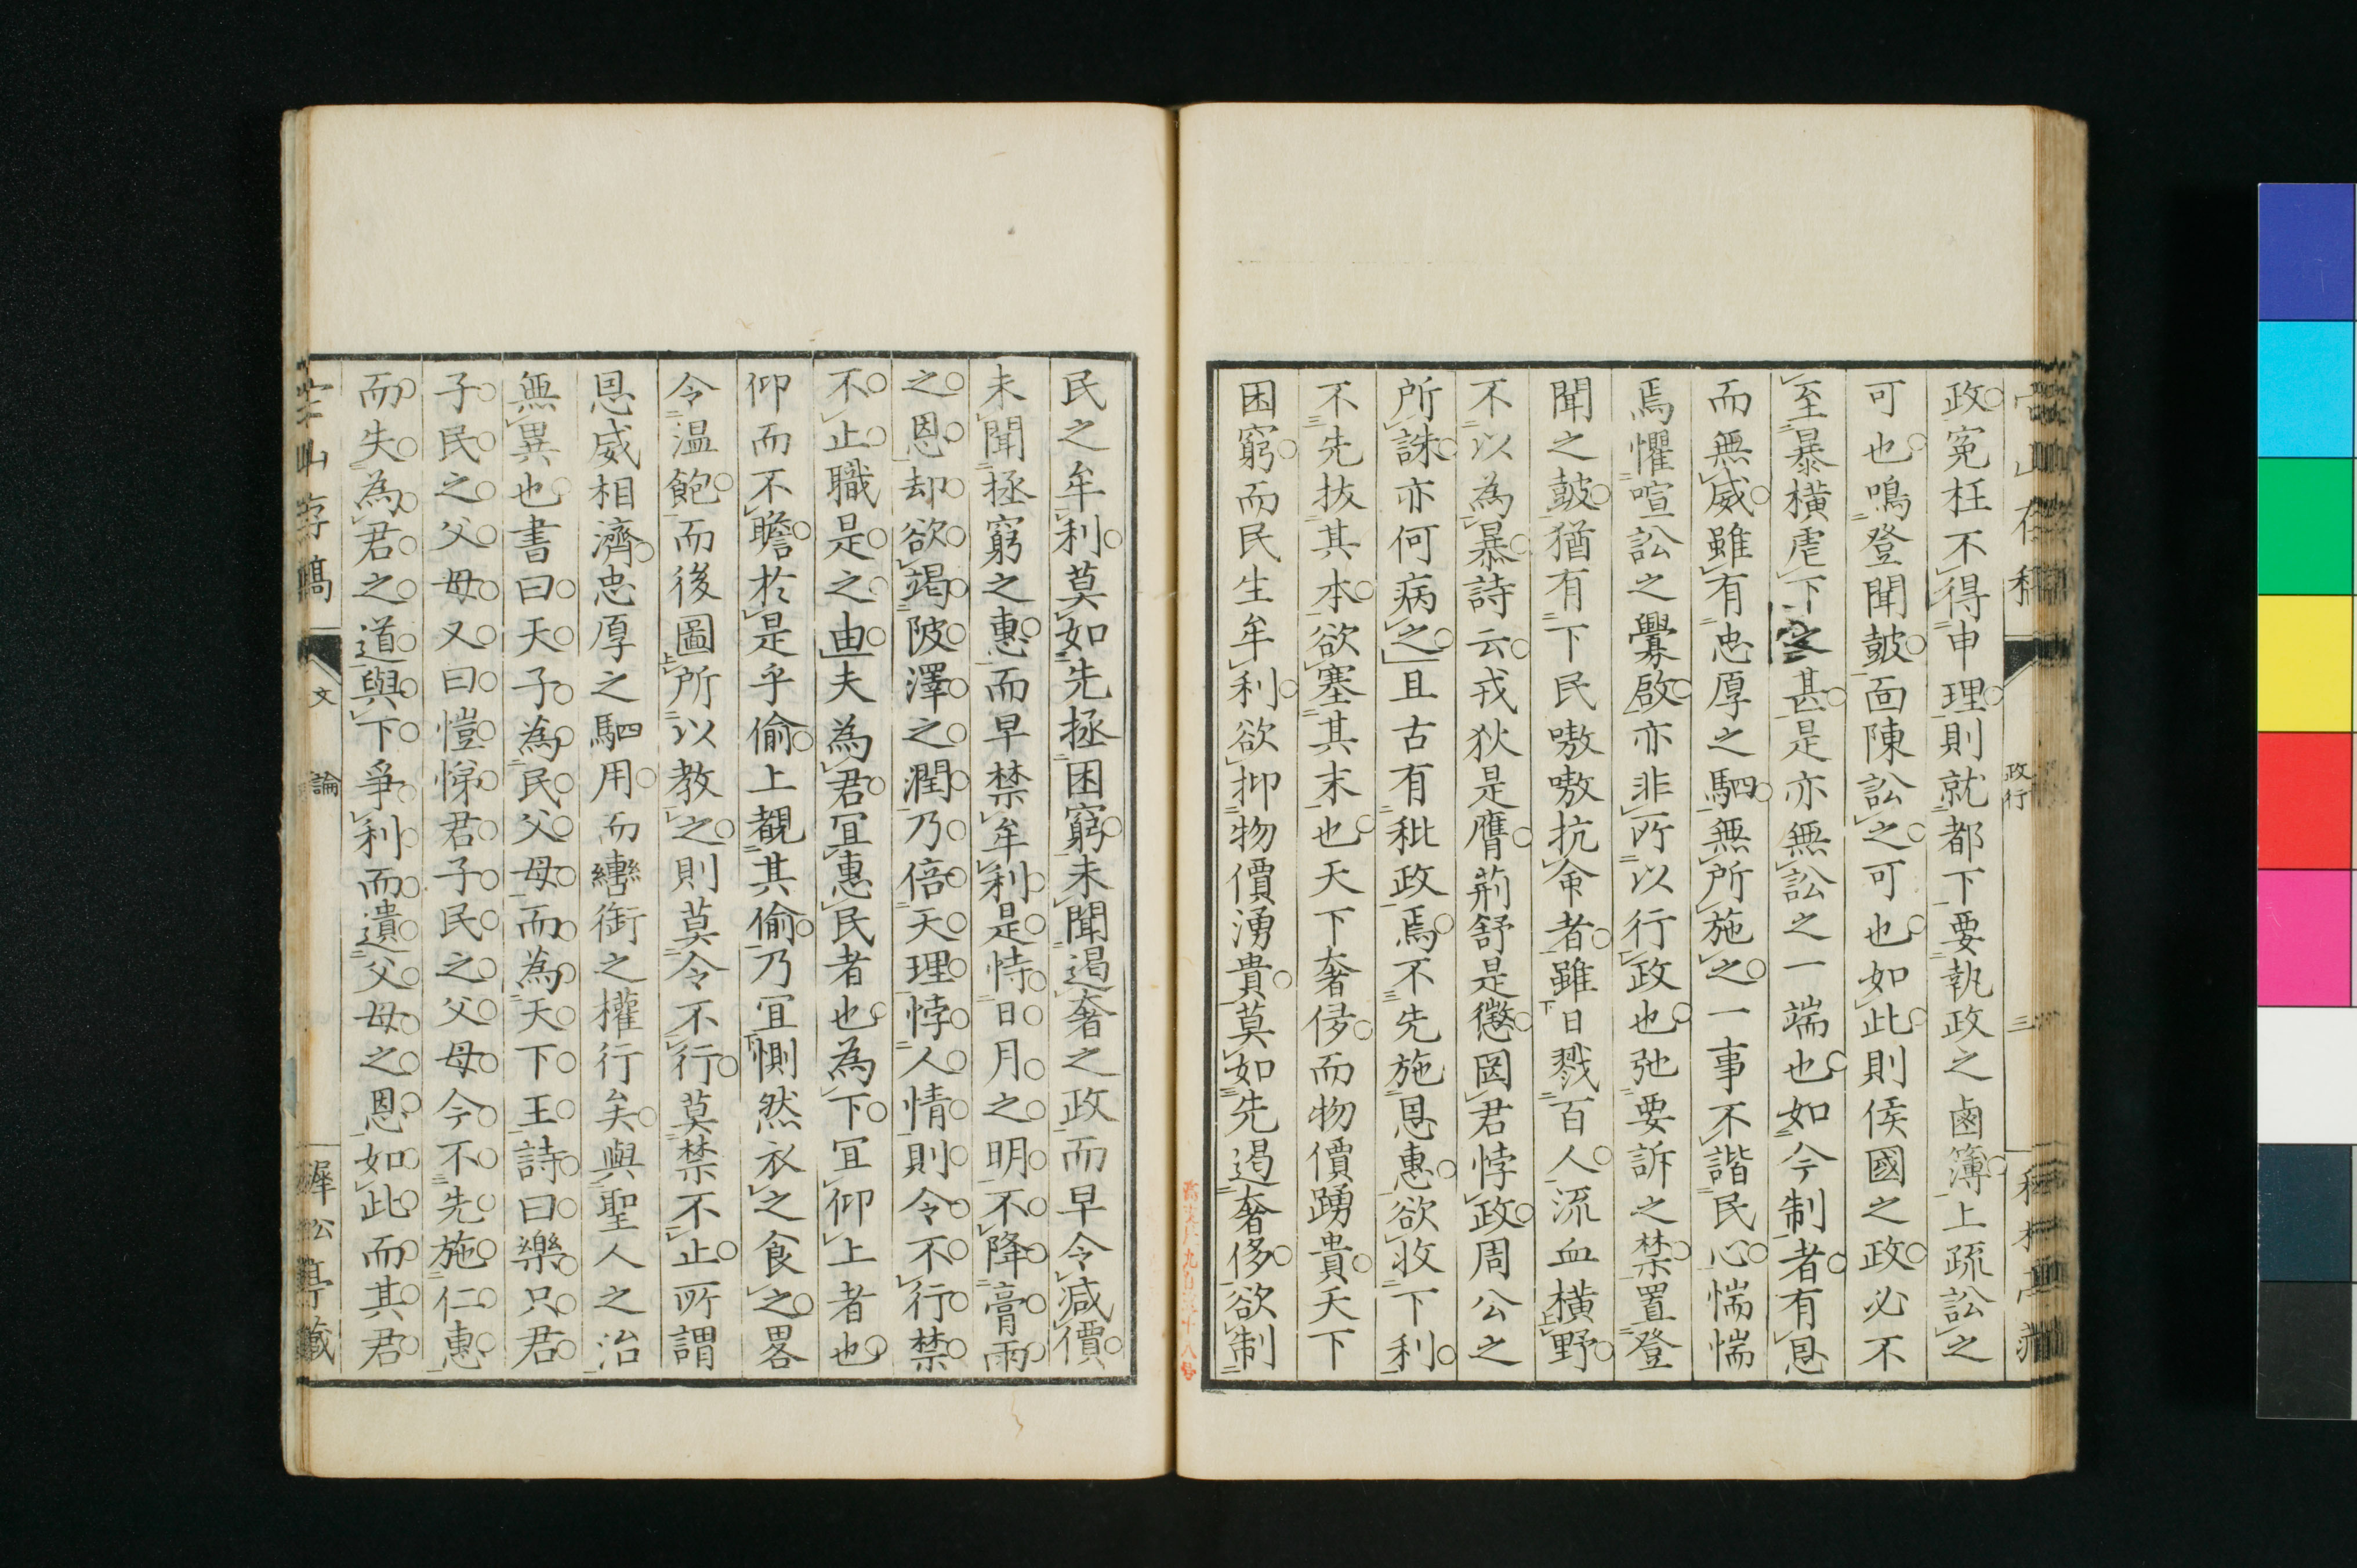 政冤枉不得申理則就都下要執政之鹵簿上疏訟之
可也鳴登聞皷面陳訟之可也如此則侯國之政必不
至暴橫虐下之甚是亦無訟之一端也如今制者有恩
而無威雖有忠厚之駟無所施之一事不諧民心惴惴
焉懼喧訟之釁啟亦非所以行政也弛要訴之禁置登
聞之皷猶有下民嗷嗷抗命者雖日戮百人流血橫野
不以為暴詩云戎狄是膺荊舒是懲罔君悖政周公之
所誅亦何病之且古有秕政焉不先施恩惠欲收下利
不先拔其本欲塞其末也天下奢侈而物價踴貴天下
困窮而民生牟利欲抑物價湧貴莫如先遏奢侈欲制
民之牟利莫如先拯困窮未聞遏奢之政而早令減價
未聞拯窮之惠而早禁牟利是恃日月之明不降膏雨
之恩却欲竭陂澤之潤乃倍天理悖人情則令不行禁
不止職是之由夫為君冝惠民者也為下冝仰上者也
仰而不瞻於是乎偷上覩其偷乃冝惻然衣之食之畧
令温飽而後圖所以教之則莫令不行莫禁不止所謂
恩威相濟忠厚之駟用而轡銜之權行矣與聖人之治
無異也書曰天子為民父母而為天下王詩曰樂只君
子民之父母又曰愷悌君子民之父母今不先施仁惠
而失為君之道與下爭利而遺父母之恩如此而其君
文 論
政行
三